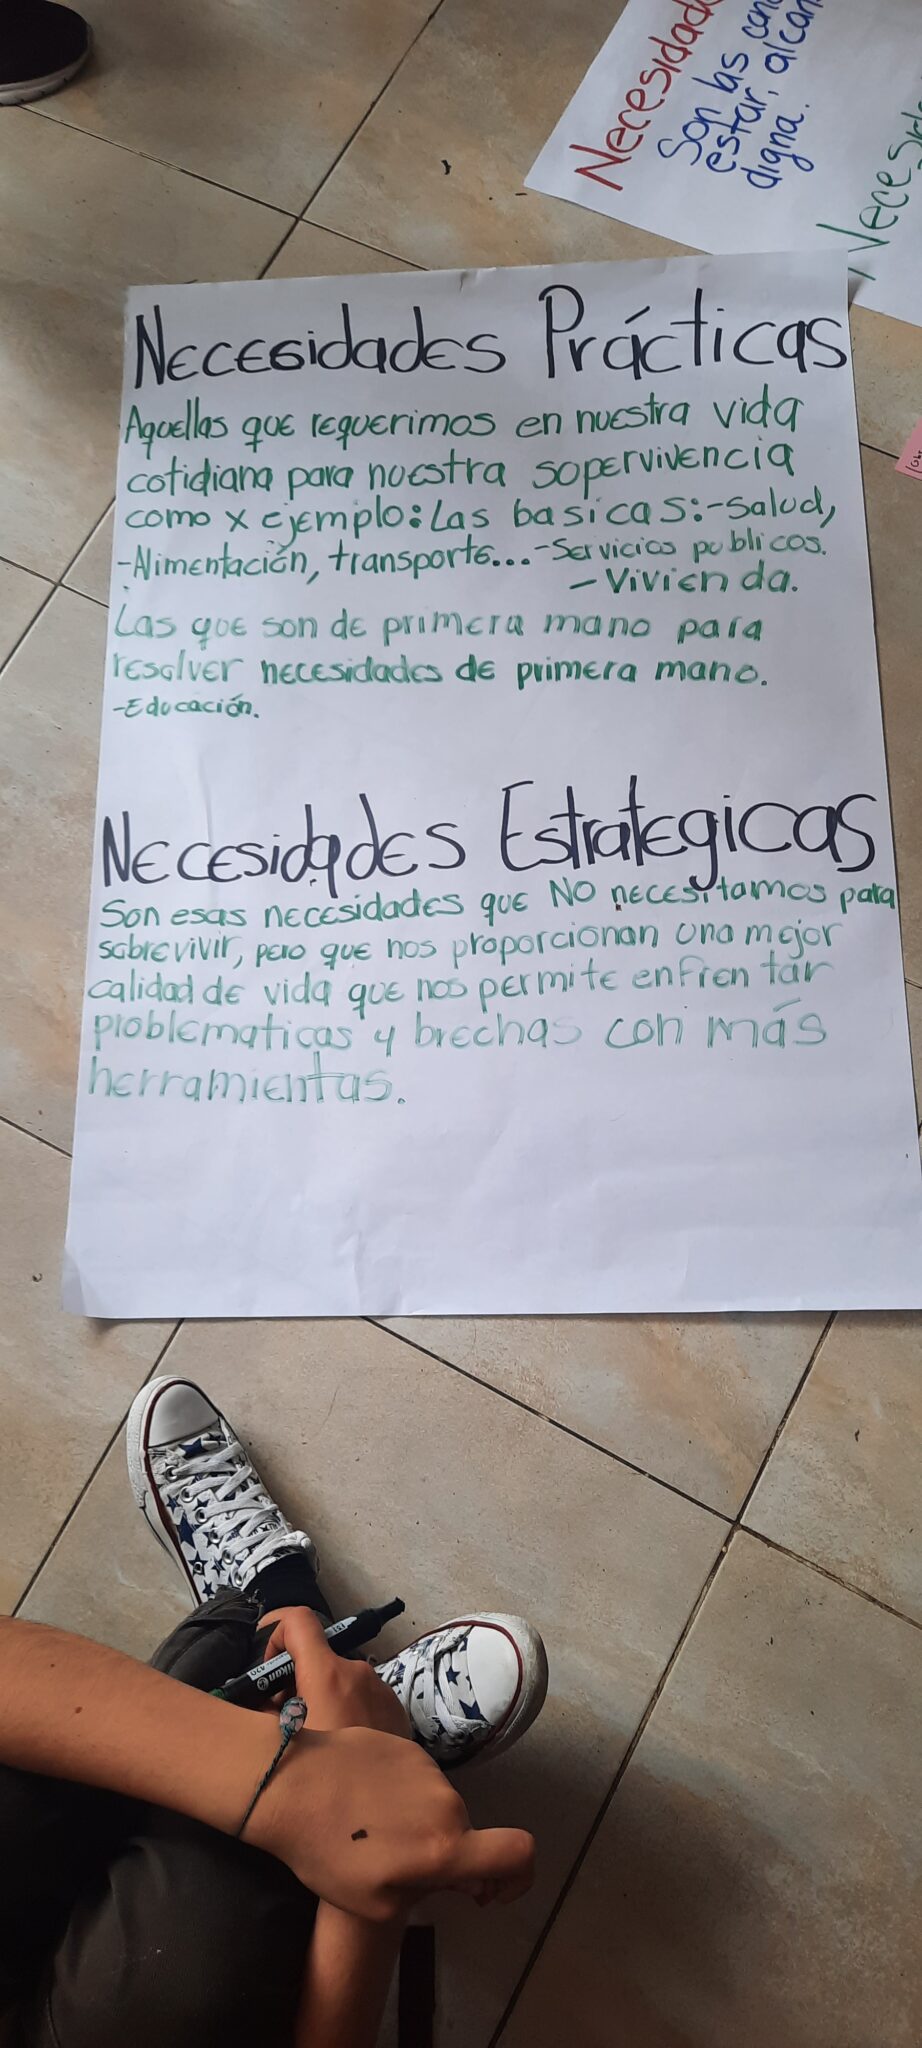 Necesidades Prácticas
Aquellas que requerimos en nuestra vida
cotidiana para nuestra sopervivencia
como x ejemplo: Las basicas:-Salud,
-Alimentación, transporte...-Servicios publicos.
-Vivienda.
Las que son de primera mano para
resolver necesidades de primera mano.
-Educación.
Necesidades Estrategicas
Son esas necesidades que NO necesitamos para
sobrevivir, pero que nos proporcionan una mejor
calidad de vida que nos permite enfrentar
problematicas y brechas con más
herramientas.
Necesidad
Son las
estar, alcan
digna.